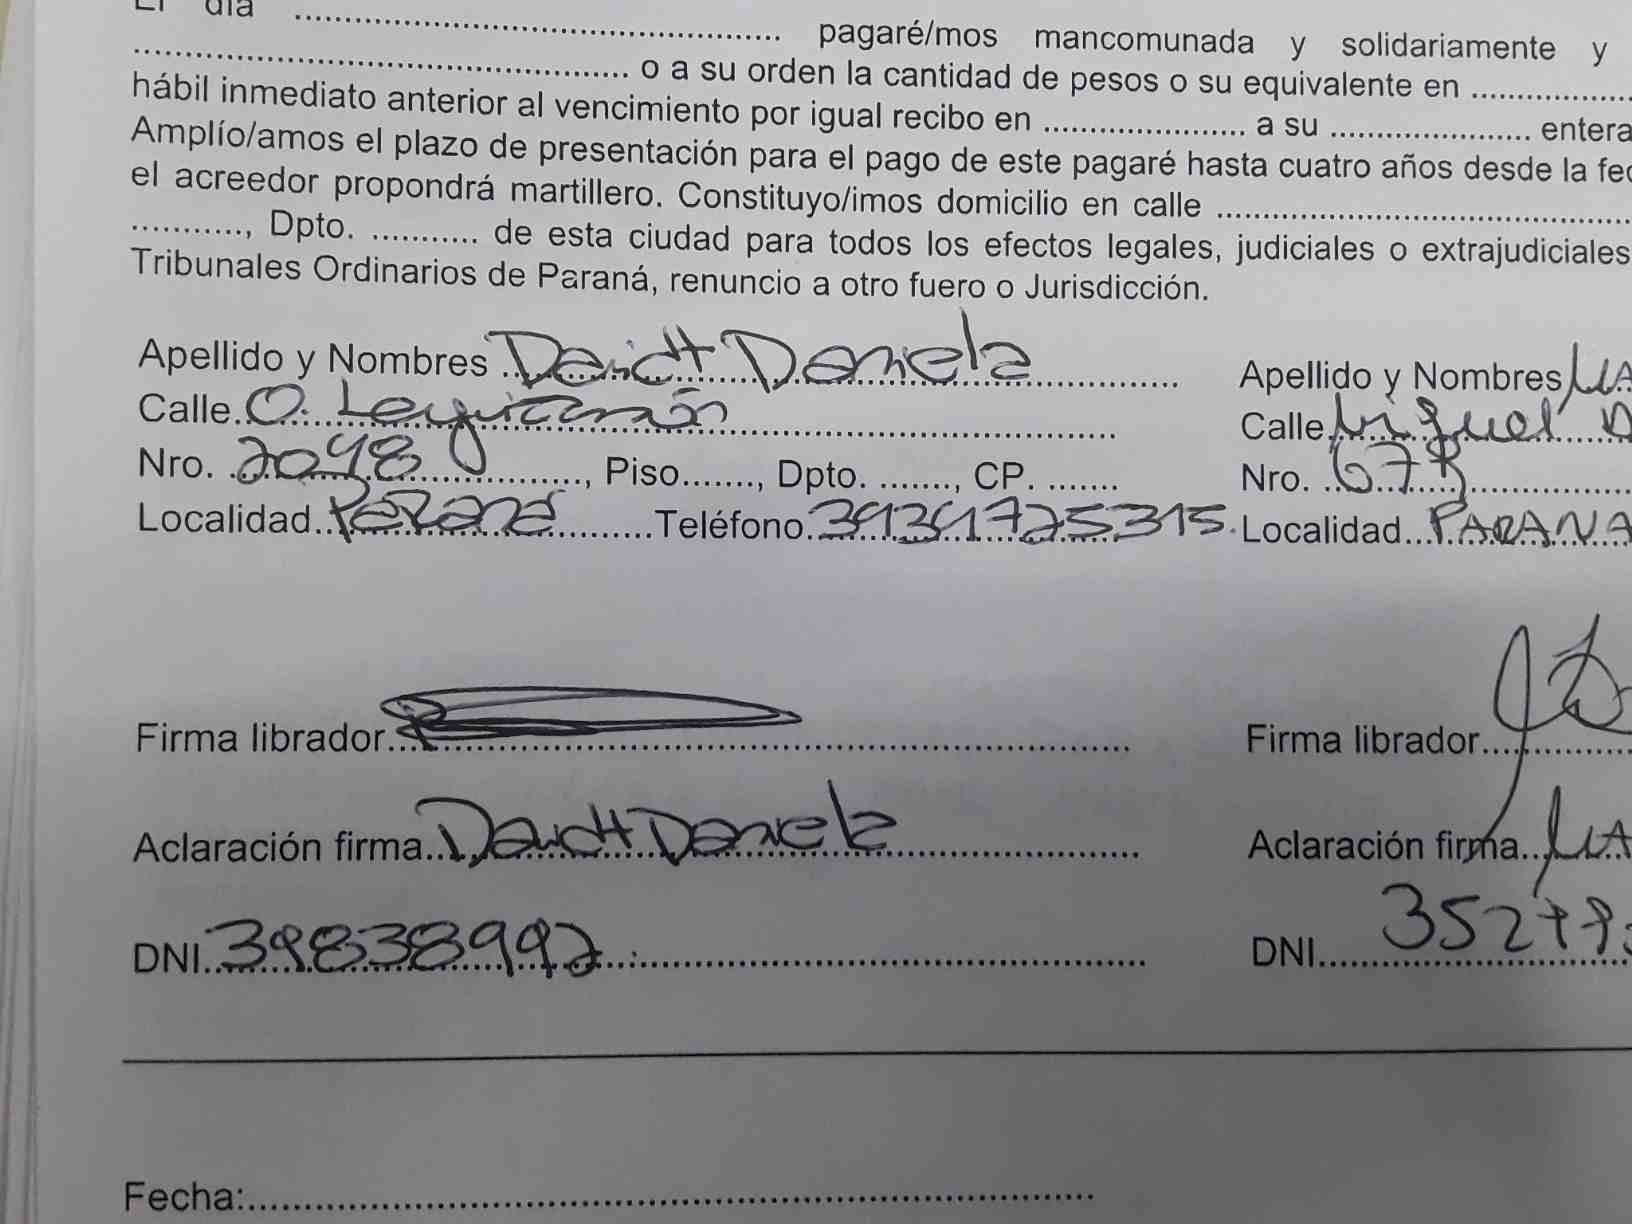 El día ........................ pagaré/mos mancomunada y solidariamente y
........................ o a su orden la cantidad de pesos o su equivalente en ..................
hábil inmediato anterior al vencimiento por igual recibo en ...................... a su ...................... entera
Amplío/amos el plazo de presentación para el pago de este pagaré hasta cuatro años desde la fec
el acreedor propondrá martillero. Constituyo/imos domicilio en calle ........................
............, Dpto. ............ de esta ciudad para todos los efectos legales, judiciales o extrajudiciales
Tribunales Ordinarios de Paraná, renuncio a otro fuero o Jurisdicción.
Apellido y Nombres Daniela
Calle O. Leguizamón
Nro. 2048, Piso........, Dpto. ........, CP. ........
Localidad Paraná Teléfono
Firma librador
Aclaración firma Daniela
DNI 39838992
Apellido y Nombres
Calle Miguel
Nro. 678
Localidad PARANA
Firma librador
Aclaración firma
DNI
Fecha: